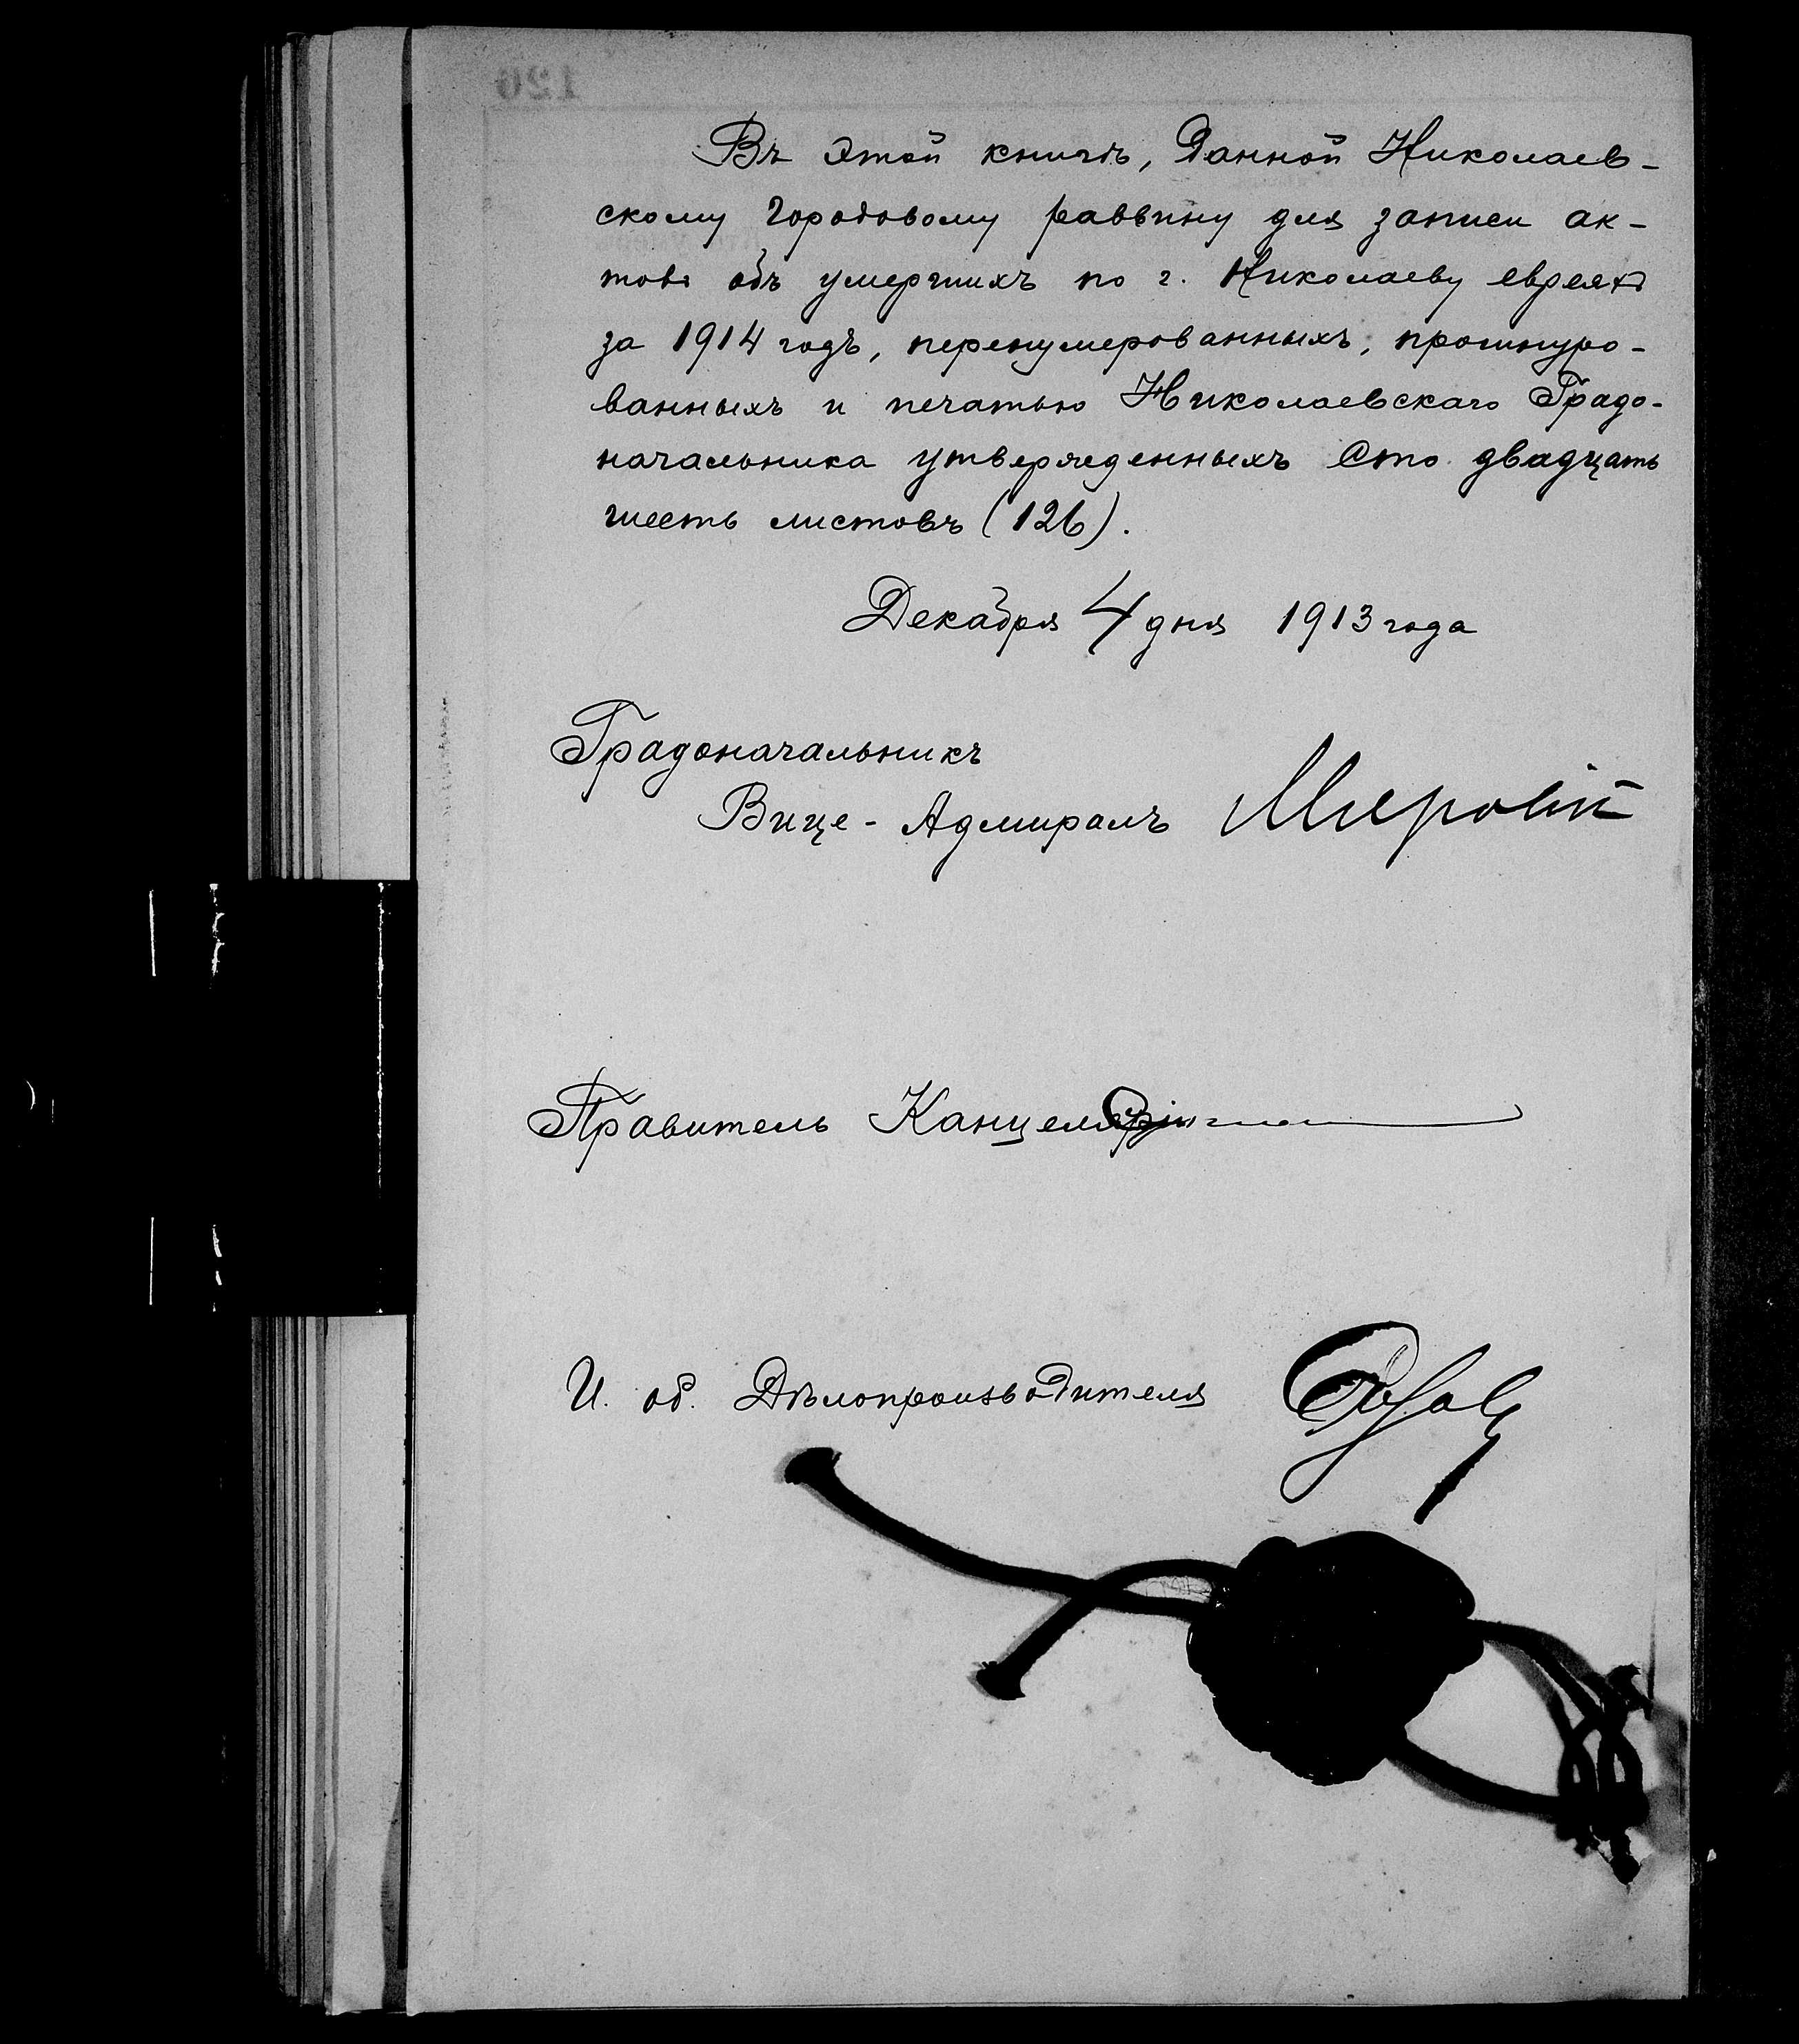 Въ этой книгѣ, данной Николаев-
скому городовому раввину для записи ак-
товъ объ умершихъ по г. Николаеву евреяхъ
за 1914 годъ, перенумерованныхъ, прошнуро-
ванныхъ и печатью Николаевскаго Градо-
начальника утвержденныхъ сто двадцать
шесть листовъ (126).
Декабря 4 дня 1913 года
Градоначальникъ
Вице-Адмиралъ
Правитель Канцеляріи
И. об. Дѣлопроизводителя